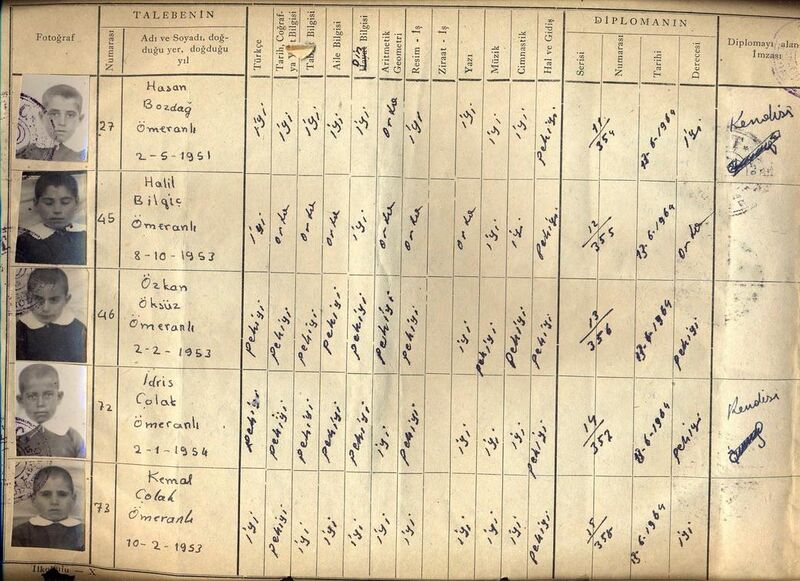 TALEBENİN
DİPLOMANIN
Fotoğraf
Numarası
Adı ve Soyadı, doğ-
duğu yer, doğduğu
yıl
Türkçe
Tarih, Coğraf-
Bilgisi
Bilgisi
Aile Bilgisi
Din
Bilgisi
Aritmetik
Geometri
Resim - İş
Ziraat - İş
Yazı
Müzik
Cimnastik
Hal ve Gidiş
Serisi
Numarası
Tarihi
Derecesi
Diplomayı alan
İmzası
27
Hasan
Bozdağ
Ömeranlı
2-5-1951
iyi iyi iyi iyi iyi orta iyi iyi iyi iyi pekiyi
11/354
6-1964
iyi
Kendisi
45
Halil
Bilgiç
Ömeranlı
8-10-1953
iyi orta orta orta iyi orta orta orta iyi iyi pekiyi
12/355
6-1964
orta
46
Özkan
Öksüz
Ömeranlı
2-2-1953
pekiyi pekiyi pekiyi pekiyi pekiyi pekiyi pekiyi iyi pekiyi pekiyi pekiyi
13/356
6-1964
pekiyi
72
İdris
Çolak
Ömeranlı
2-1-1954
pekiyi pekiyi pekiyi pekiyi pekiyi iyi pekiyi iyi iyi iyi pekiyi
14/357
6-1964
pekiyi
Kendisi
73
Kemal
Çolak
Ömeranlı
10-2-1953
iyi pekiyi iyi iyi iyi iyi iyi iyi iyi iyi pekiyi
15/358
6-1964
iyi